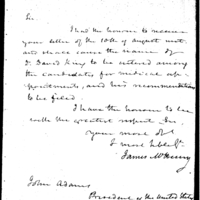 Sir.
I had the honour to receive
your letter of the 10th of August inst.
and have caused the name of
Dr. David King to be entered among
the candidates for medical ap-
pointments, and his recommendations
to be filed
I have the honour to be
with the greatest respect Sir,
your most Obt
& most hble St.
James McHenry
John Adams
President of the United States